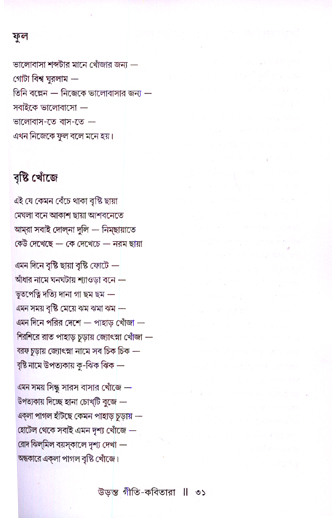 ফুল
ভালোবাসা শব্দটার মানে খোঁজার জন্য —
গোটা বিশ্ব ঘুরলাম —
তিনি বল্লেন — নিজেকে ভালোবাসার জন্য —
সবাইকে ভালোবাসো —
ভালোবাস-তে বাস-তে —
এখন নিজেকে ফুল বলে মনে হয়।
বৃষ্টি খোঁজে
এই যে কেমন বেঁচে থাকা বৃষ্টি ছায়া
মেঘলা বনে আকাশ ছায়া আশবনেতে
আম্‌রা সবাই দোল্‌না দুলি — নিম্‌ছায়াতে
কেউ দেখেছে — কে দেখেচে — নরম ছায়া
এমন দিনে বৃষ্টি ছায়া বৃষ্টি ফোটে —
আঁধার নামে ঘনঘটায় শ্যাওড়া বনে —
ভূতপেত্নি দত্যি দানা গা ছম ছম —
এমন সময় বৃষ্টি মেয়ে ঝম ঝমা ঝম —
এমন দিনে পরির দেশে — পাহাড় খোঁজা —
শিরশিরে রাত পাহাড় চূড়ায় জ্যোৎস্না খোঁজা —
বরফ চূড়ায় জ্যোৎস্না নামে সব চিক চিক —
বৃষ্টি নামে উপত্যকায় কু-ঝিক ঝিক —
এমন সময় সিন্ধু সারস বাসার খোঁজে —
উপত্যকায় দিচ্ছে হানা চোখ্‌টি বুজে —
এক্‌লা পাগল হাঁটছে কেমন পাহাড় চূড়ায় —
হোটেল থেকে সবাই এমন দৃশ্য খোঁজে —
রোদ ঝিল্‌মিল বয়স্কালে দৃশ্য দেখা —
অন্ধকারে এক্‌লা পাগল বৃষ্টি খোঁজে।
উড়ন্ত গীতি-কবিতারা ॥ ৩১